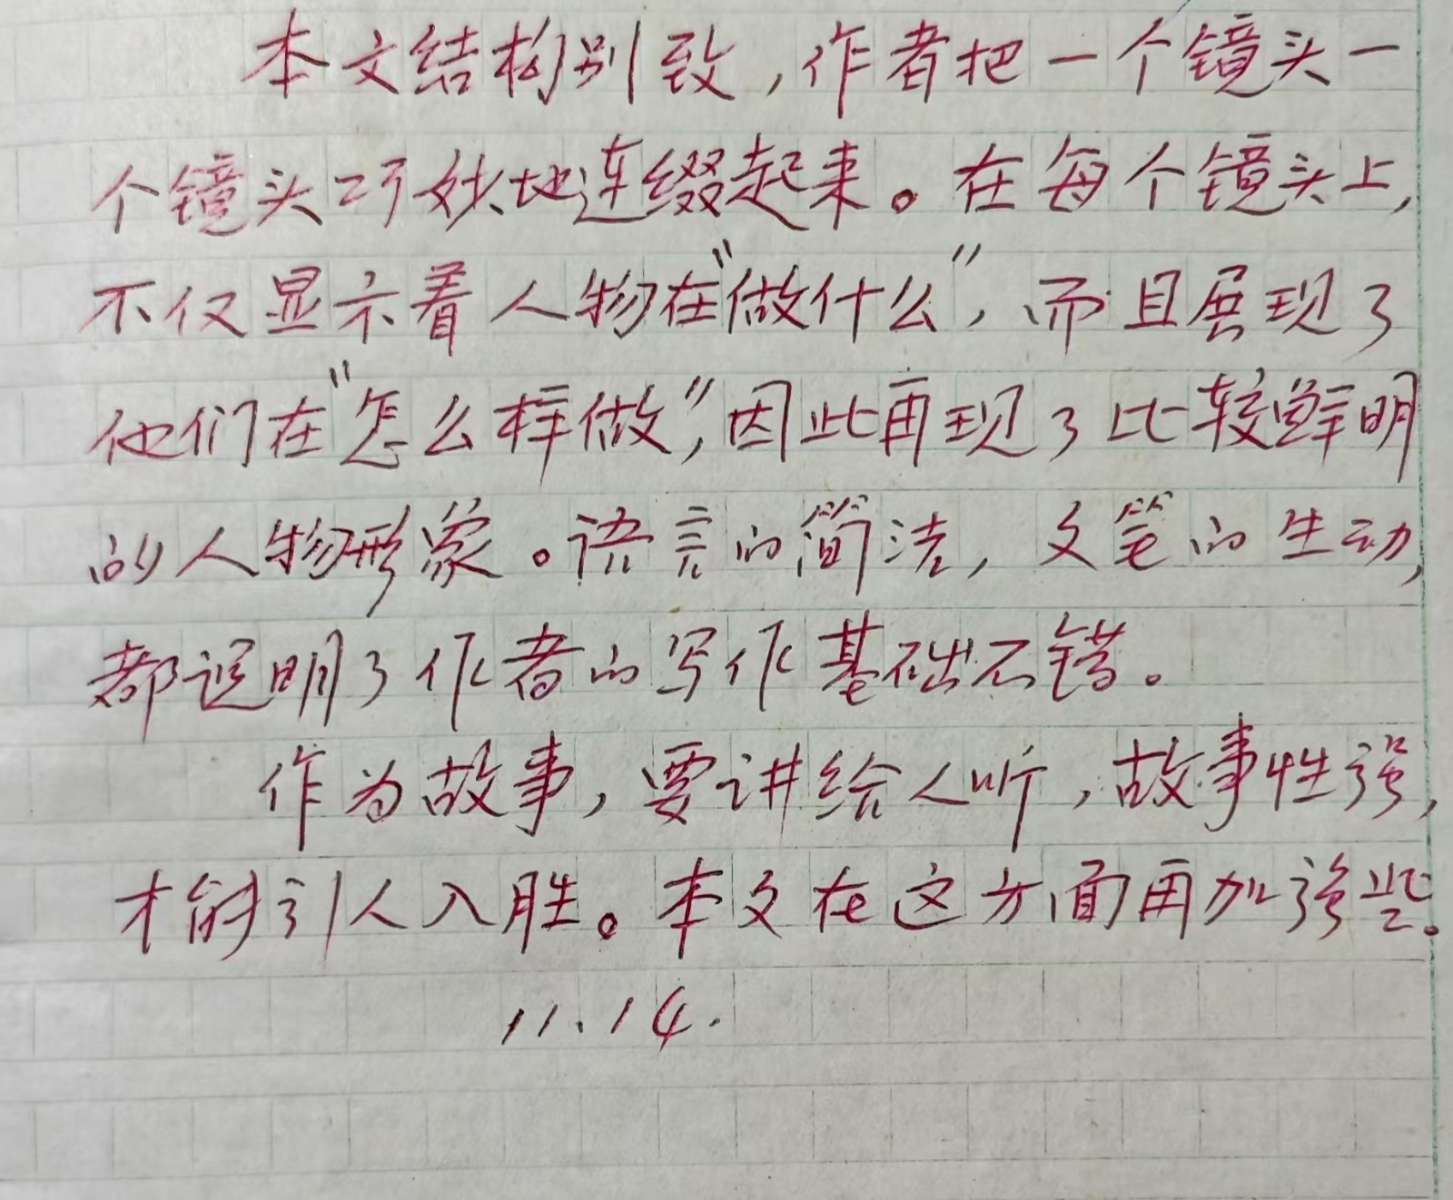 本文结构别致,作者把一个镜头一
个镜头巧妙地连缀起来。在每个镜头上,
不仅显示着人物在"做什么",而且展现了
他们在"怎么样做",因此再现了比较鲜明
的人物形象。语言的简洁,文笔的生动,
都说明了作者的写作基础不错。
作为故事,要讲给人听,故事性强,
才能引人入胜。本文在这方面再加强些。
11.14.